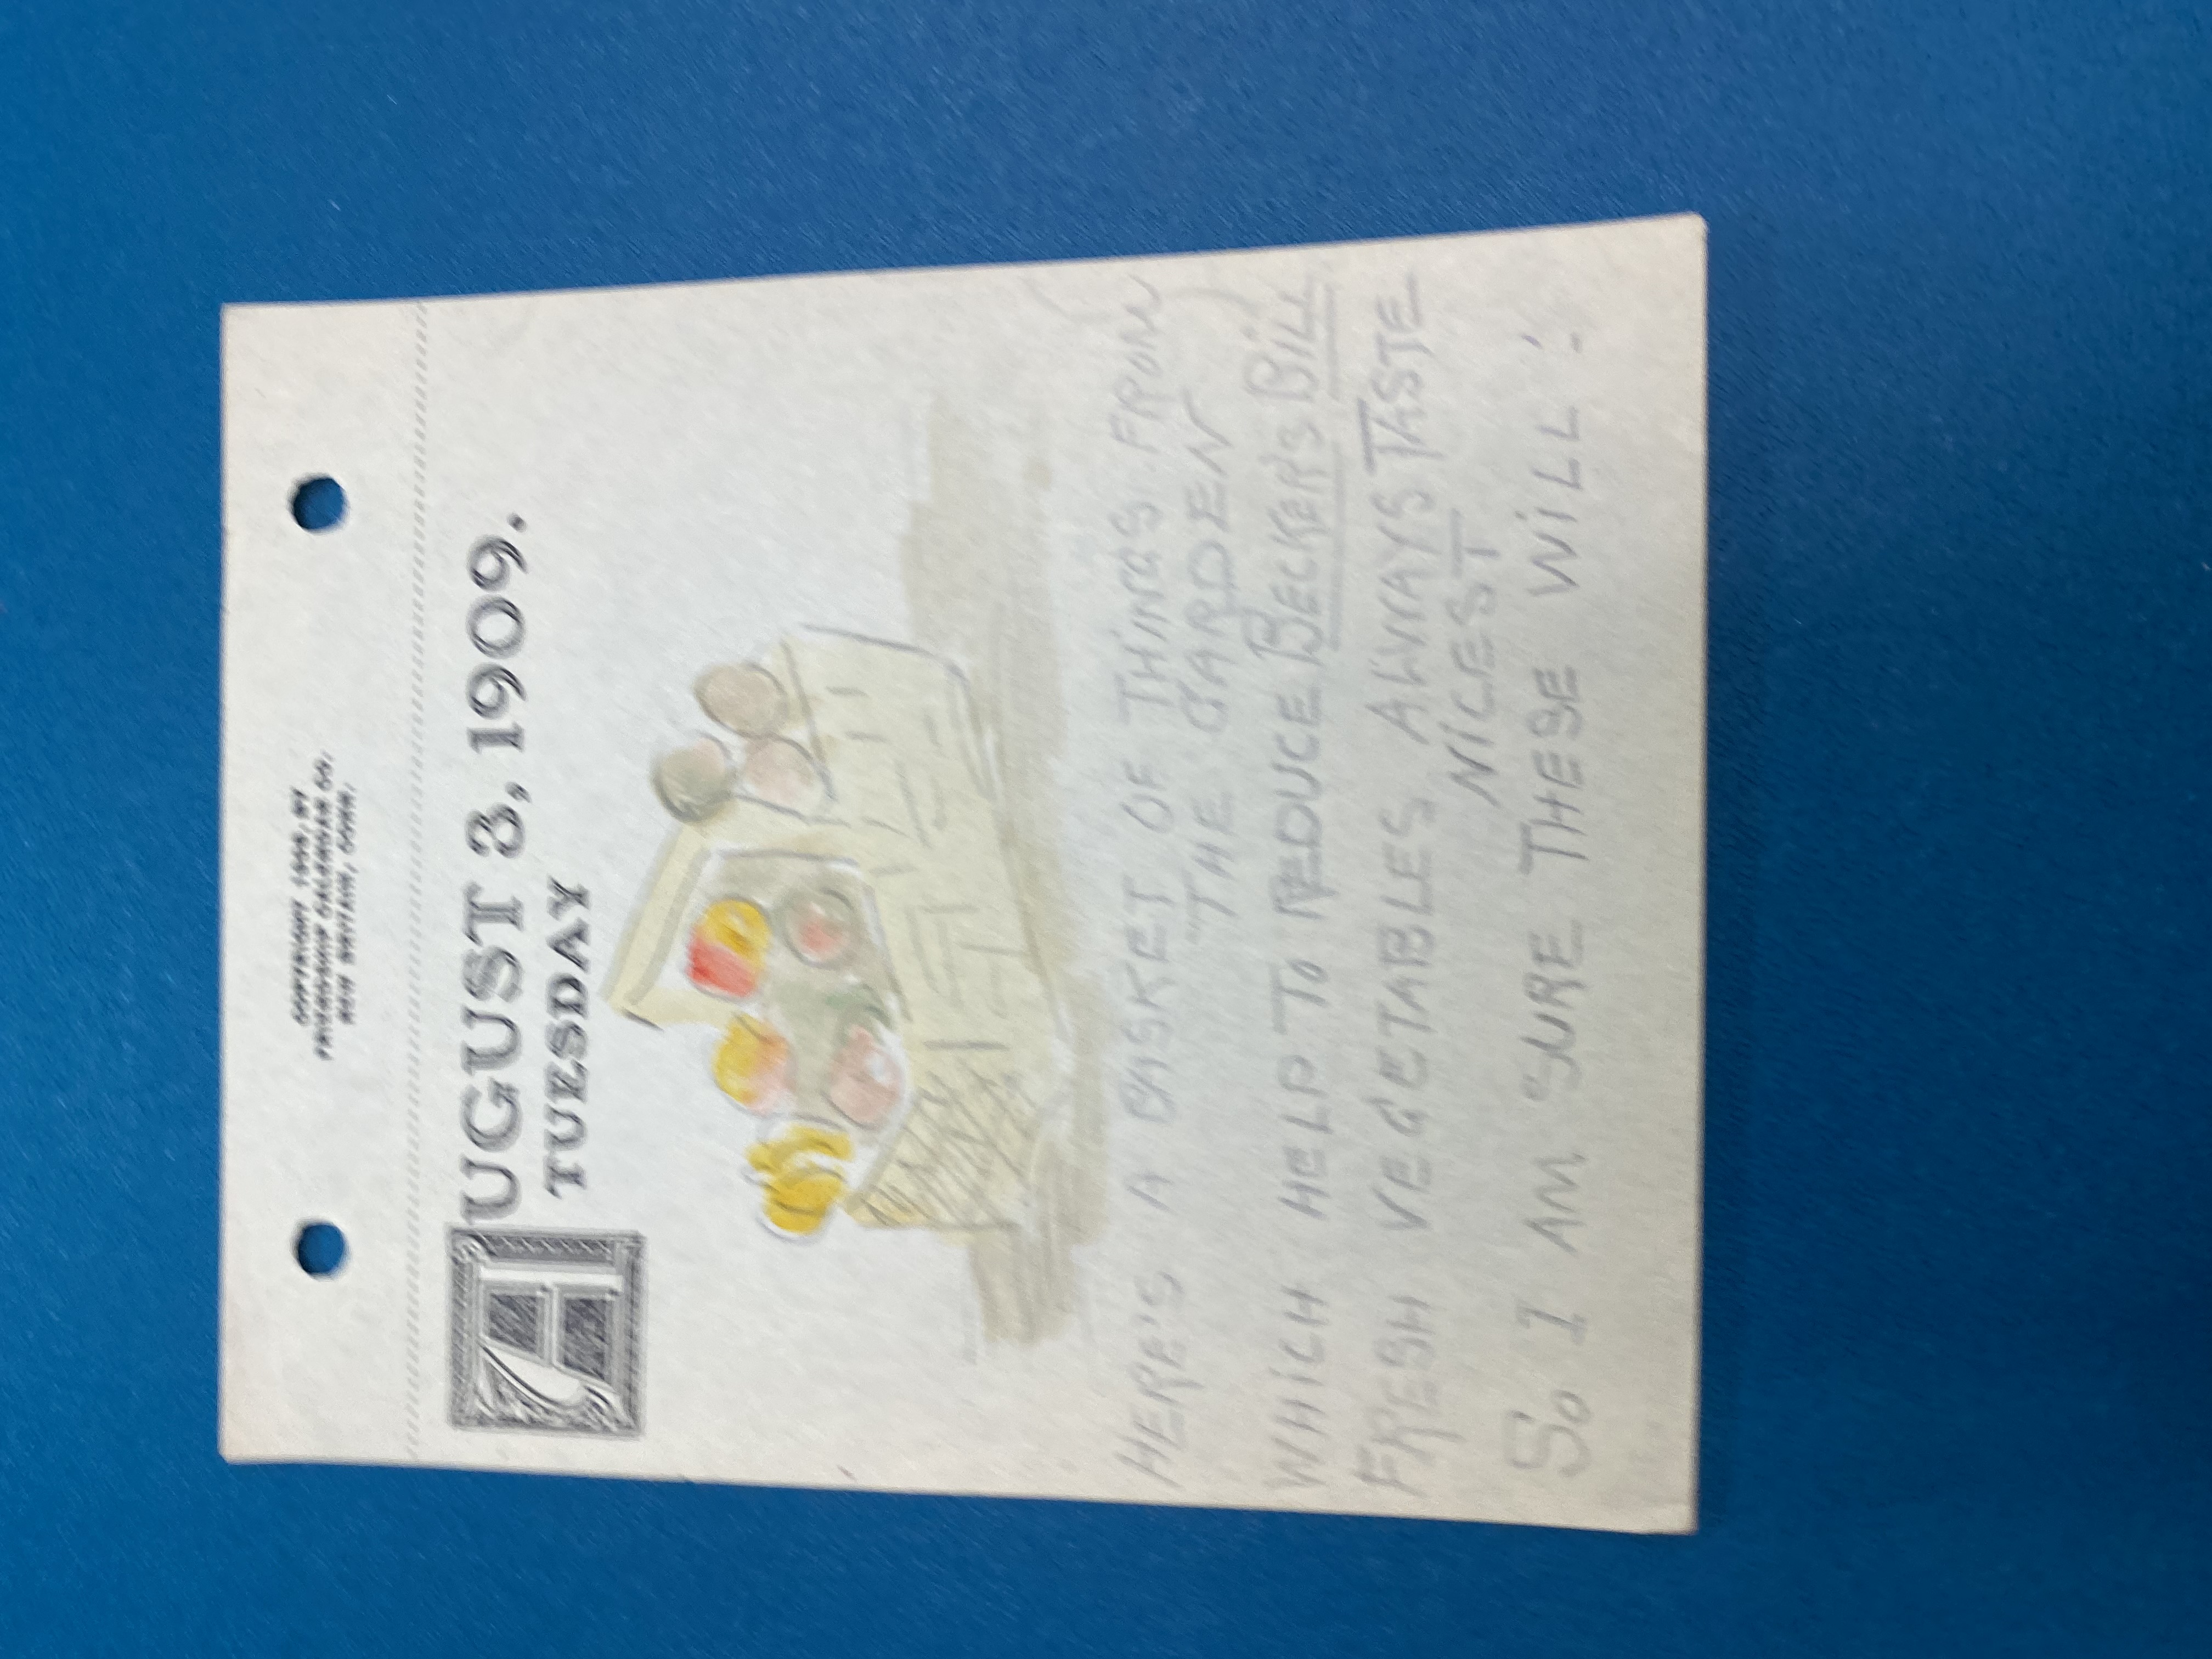 COPYRIGHT 1908, BY
FRIENDSHIP CALENDAR CO.
NEW BRITAIN, CONN.
AUGUST 3, 1909.
TUESDAY
HERE'S A BASKET OF THINGS FROM
THE GARDEN
WHICH HELP TO REDUCE BECKER'S BILL
FRESH VEGETABLES ALWAYS TASTE
NICEST
SO I AM SURE THESE WILL!